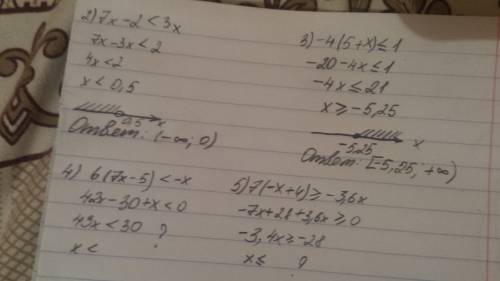 2) 7x-2<3x
7x-3x<2
4x<2
x<0,5
0,5 x
Ответ: (-∞; 0)
3) -4(5+x)≤1
-20-4x≤1
-4x≤21
x≥-5,25
-5,25 x
Ответ: [-5,25; +∞)
4) 6(7x-5)<-x
42x-30+x<0
43x<30 ?
x<
5) 7(-x+4)≥-3,6x
-7x+28+3,6x≥0
-3,4x≥-28
x≤ ?